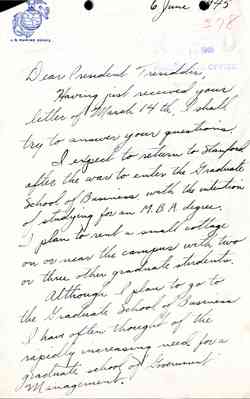 6 June 1945
U.S. MARINE CORPS
378
OFFICE
Dear President Tresidder,
Having just received your
letter of March 14th, I shall
try to answer your questions.
I expect to return to Stanford
after the war to enter the Graduate
School of Business with the intention
of studying for an M.B.A. degree.
I plan to rent a small cottage
on or near the campus with two
or three other graduate students.
Although I plan to go to
the Graduate School of Business
I have often thought of the
rapidly increasing need for a
graduate school of Government
Management.